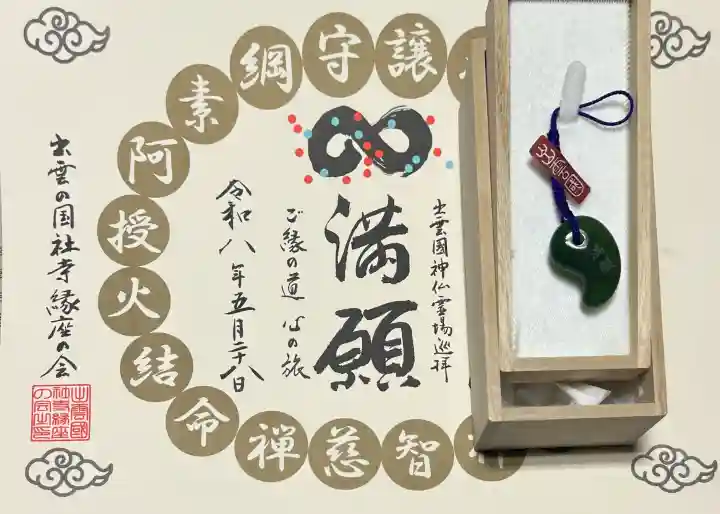 出雲國神仏霊場巡拝
満願
ご縁の道 心の旅
令和八年五月二十八日
出雲の国社寺縁座の会
譲
守
綱
素
阿
授
火
結
命
禅
慈
智
出雲國